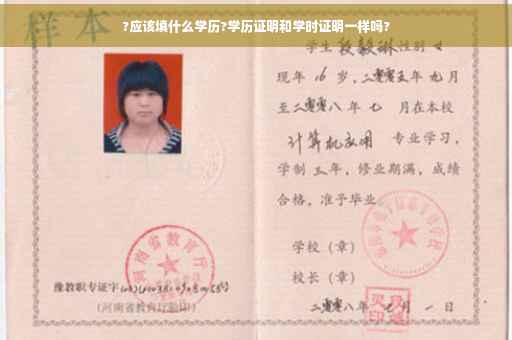 ?应该填什么学历?学历证明和学时证明一样吗?
样本
学生段毅琳性别 女
现年 16 岁,二零零五年九月
至二零零八年 七 月在本校
计算机应用 专业学习,
学制 三 年,修业期满,成绩
合格,准予毕业
学校(章)
校长(章)
二零零八年 月 一 日
河南省教育厅
豫教职专证字
(河南省教育厅验印)